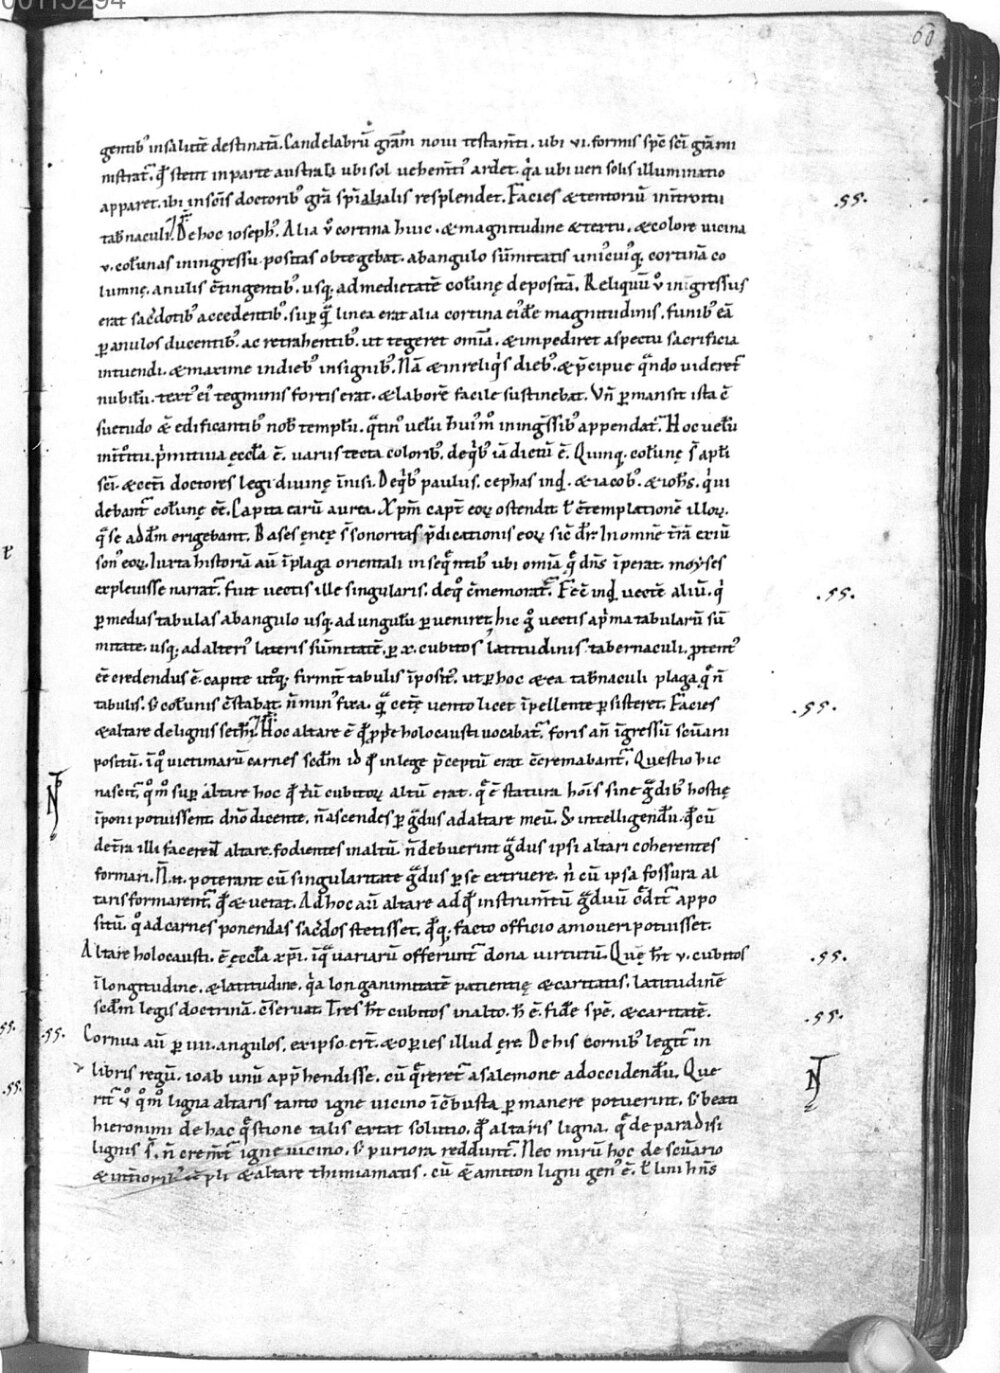 00115294
60
gentib' in salutē destinatā. Candelabrū gr̄am noui testam̄ti. ubi vi. formis spc̄ sc̄i gr̄a mi
nistrat̄. qđ stetit in parte australi ubi sol uehem̄ti' ardet. q̇a ubi ueri solis illuminatio
apparet. ibi in sc̄is doctorib' gr̄a sp̄ialis resplendet. Facies & tentoriū in introitu
tab̄naculi. De hoc ioseph'. Alia v̊ cortina huic. & magnitudine & textu. & colore uicina
v. colūnas in ingressu positas obtegebat. ab angulo sūmitatis unicuiq; cortina co
lumnę. anulis c̄tingentib'. usq; ad medietatē colūnę deposita. Reliquū v̊ ingressus
erat sac̄dotib' accedentib'. sup̱ q̄ linea erat alia cortina ei'dē magnitudinis. funib' eā
ꝑ anulos ducentib'. ac retrahentib'. ut tegeret om̄ia. & impediret aspectu sacrificia
intuendi. & maxime in dieb' insignib'. Nā & in reliq̇s dieb'. & p̄cipue q̄ndo uideret̄
nubilū. text' ei' tegminis fortis erat. & laborē facile sustinebat. Vn̄ ꝑmansit ista c̄
suetudo & edificantib' nob̄ templū. q̄tin' uelū hui'm̊ in inḡssib' appendat̄. Hoc uelū
in introitu. ṗmitiua ęccl̄a ē. uarus tecta colorib'. de q̇b' iā dictū ē. Quinq; colūnę s̄ apl̄i
sc̄i. & cet̄i doctores legi diuinę īnisi. De q̇b' paulus. cephas inq̇d. & iacob'. & ioh̄s. q̇ ui
debant̄ colūnę eē. Capita earū aurea. Xp̄m capt̄ eoꝝ ostendit ł c̄templatione illoꝝ.
q̄ se ad dm̄ erigebant. Bases ęneę s̄ sonoritas p̄dicationis eoꝝ sic dr̄. In omnē t̄rā exiū
son' eoꝝ. Iuxta historiā aū ī plaga orientali in seq̄ntib' ubi omia q̄ dn̄s īperat. moyses
explevisse narrat̄. fuit uectis ille singularis. de q̊ c̄memorat̄. Fec̄ inq̇d uectē aliū. q̇
ꝑ medias tabulas ab angulo usq; ad ungulū ꝑueniret. hic ḡ uectis a ṗma tabularū sū
mitate. usq; ad alteri' lateris sūmitatē. ꝑ x. cubitos latitudinis tabernaculi. ꝓtent'
eē credendus ē. capite utq; firmit̄ tabulis īposit'. ut ꝑ hoc & ea tab̄naculi plaga. q̄ n̄
tabulis. s; colūnis c̄stabat. n̄ min' fixa. q̄ cet̄ę uento licet īpellente ꝑsisteret. Facies
& altare de lignis sethī. Hoc altare ē qđ ꝓp̄e holocausti uocabat̄. foris an̄ īgressū sc̄uarii
positū. ī q̊ uictimarū carnes scđm id qđ in lege p̄ceptū erat c̄cremabant̄. Questio hic
nascit̄. q̊m̊ sup̱ altare hoc qđ triū cubitoꝝ altū erat. q̄ ē statura hōis sine g̊dib' hostię
īponi potuissent. dn̄o dicente. n̄ ascendes ꝑ g̊dus ad altare meū. S; intelligendū. qđ cū
de tr̄a illi facerent altare. fodientes in altū. n̄ debuerint g̊dus ipsi altari coherentes
formari. N̄. n. poterant cū singularitate g̊dus ꝑ se extruere. n̄ cū ipsa fossura al
taris formarent̄. qđ & uetat. Ad hoc aū altare ad qđ instrum̄tū g̊duū c̄dit̄ appo
sitū. q̊ ad carnes ponendas sac̄dos stetisset. qđq; facto officio amoueri potuisset.
Altare holocausti. ē ęccl̄a xp̄i. ī q̄ uariarū offerunt̄ dona uirtutū. Quę hт̄ v. cubitos
ī longitudine. & latitudine. q̇a longanimitatē patientię & caritatis. latitudinē
scđm legis doctrinā. c̄seruat. Tres hт̄ cubitos in alto. h̄ ē. fidē spē. & caritatē.
Cornua aū ꝑ iiii. angulos. ex ipso er̄t. & oꝑies illud ęre. De his cornib' legit̄ in
libris regū. ioab unū app̄hendisse. cū q̄reret̄ a salemone ad occidendū. Que
rit̄ v̊ q̊m̊ ligna altaris tanto igne uicino īc̄busta ꝑmanere potuerint. s; beati
hieronimi de hac q̄stione talis extat solutio. qđ altaris ligna. q̄ de paradisi
lignis s̄. n̄ crem̄t̄ igne uicino. s; puriora reddunt̄. Nec mirū hoc de sc̄uario
& int̄iorib' tēpli & altare thimiamatis. cū & amiton ligni gen' ē. ł lini hn̄s
.55.
.55.
.55.
.55.
.55.
.55.
55.
.55.